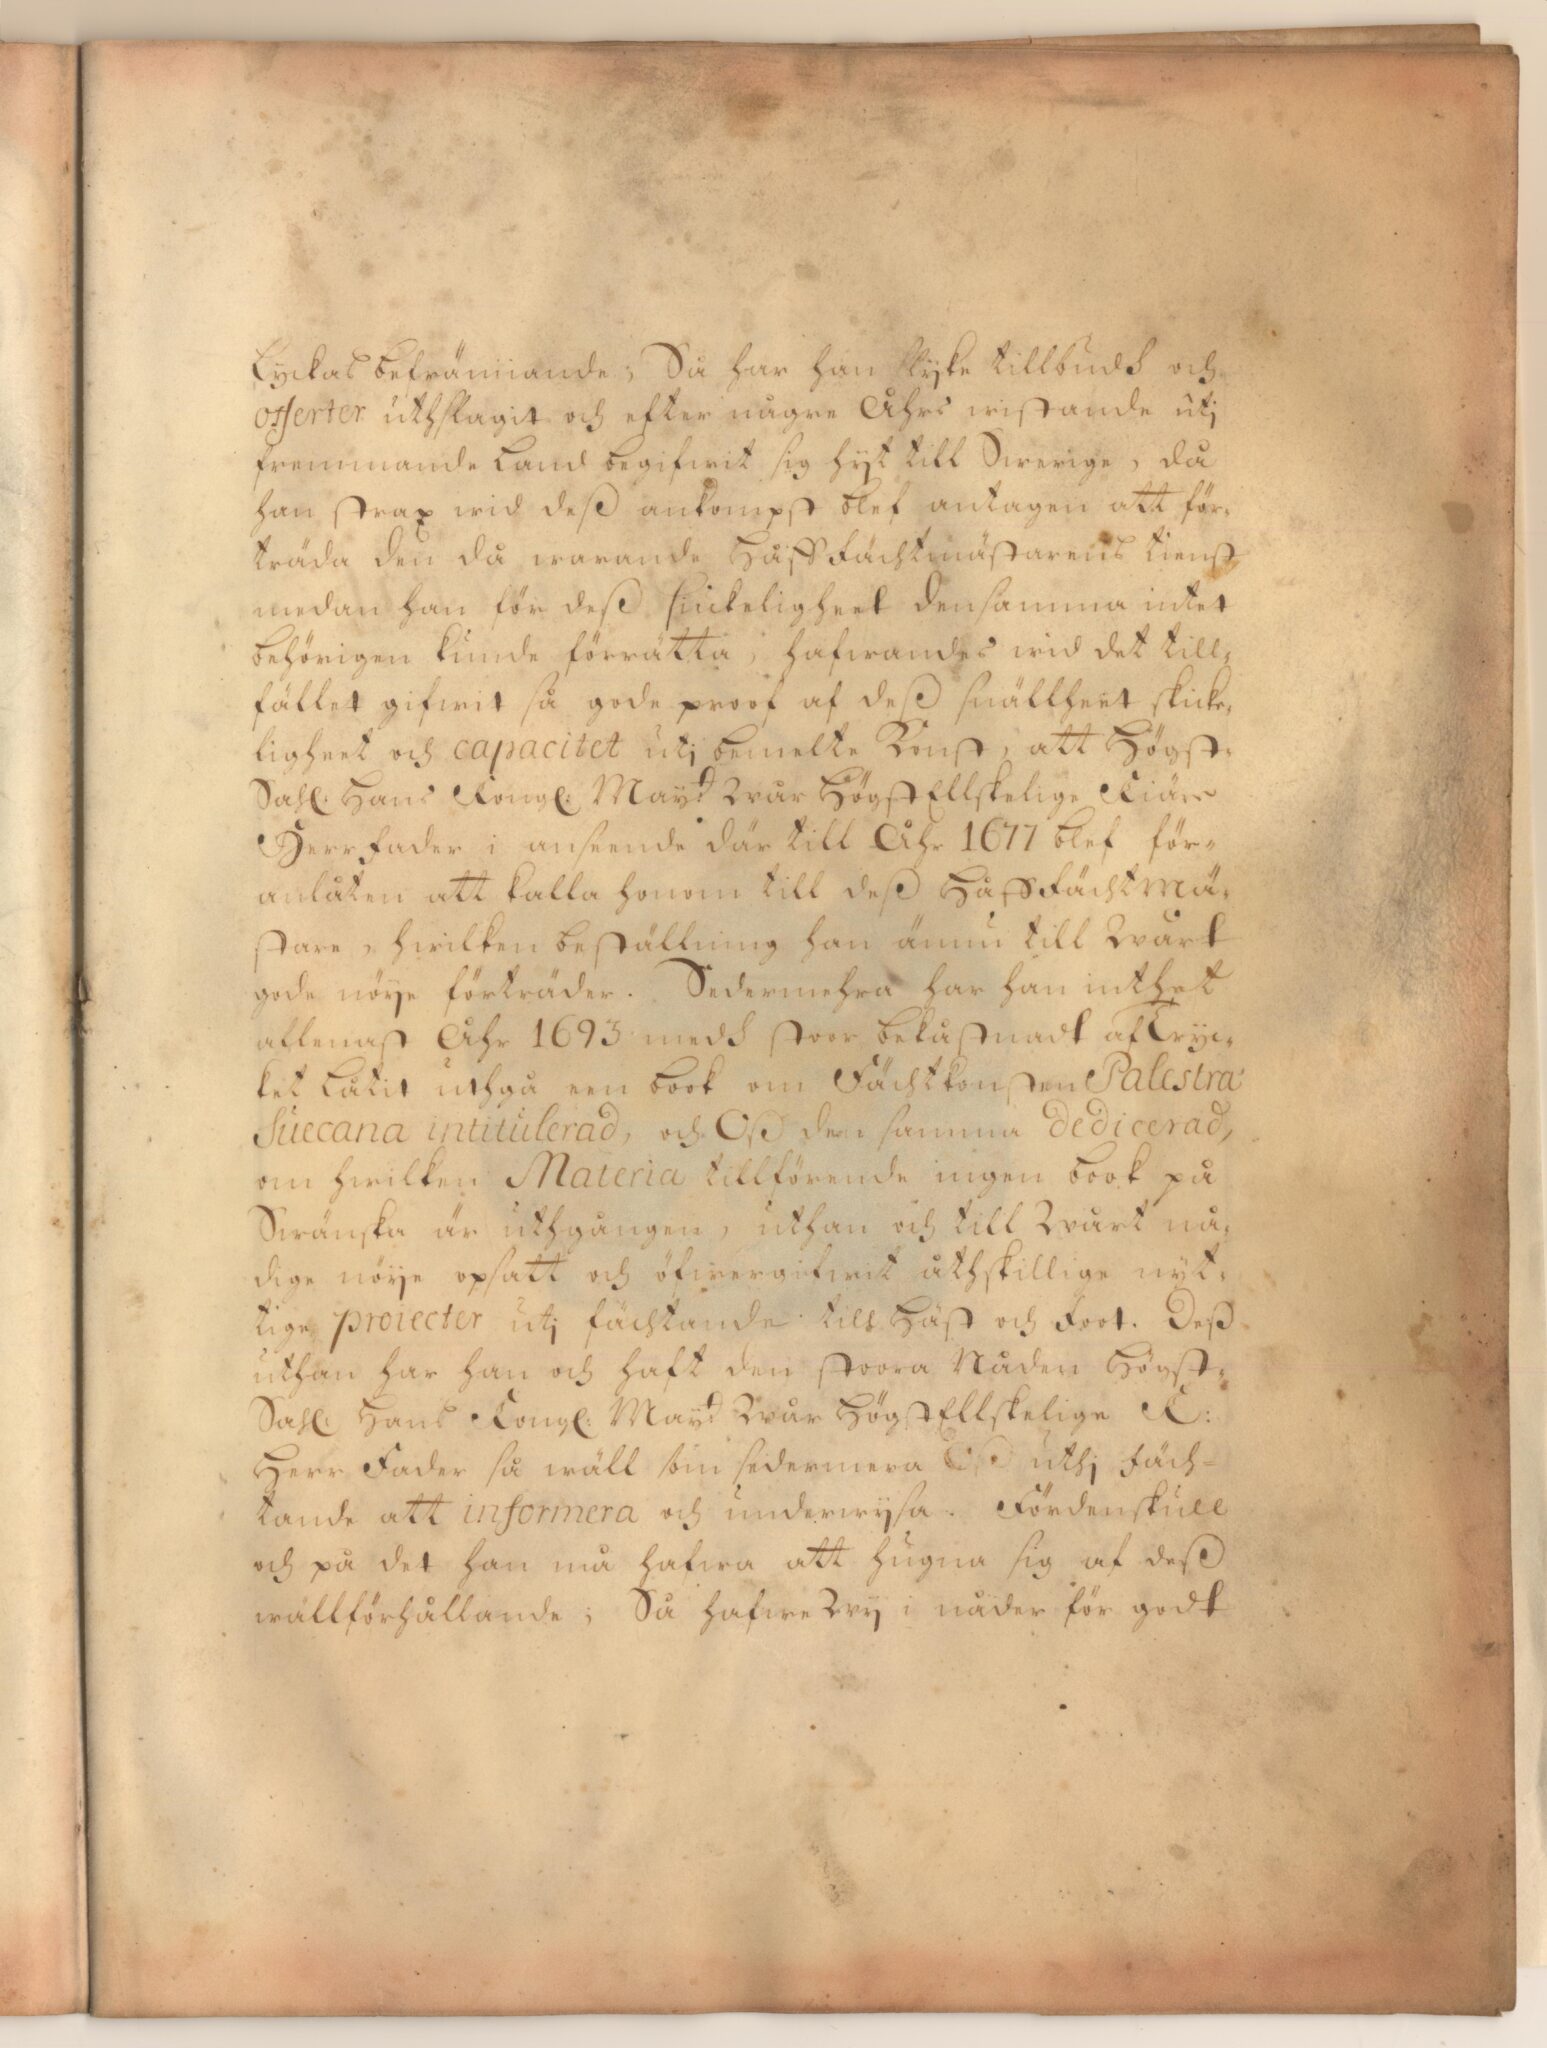 Lyckas befrämiande; Så har han slijke tillbudh och
offerter uthslagit och efter någre Åhrs wistande utj
fremmande Land begifwit sig hijt till Swerige, då
han strax wid deß ankompst blef antagen att för-
träda den då warande HåffFächtmästarens tienst
medan han för deß siukeligheet densamma intet
behörigen kunde förrätta, hafwandes wid det till-
fället gifwit så gode proof af deß snällheet skicke-
ligheet och capacitet utj bemelte Konst, att Högst-
Sahl. Hans Kongl: Mayt Wår HögstEllskelige Kiäre
Herr Fader i anseende där till Åhr 1677 blef för-
anlåten att kalla honom till deß HåffFächtMä-
stare, hwilken beställning han ännu till Wårt
gode nöye förträder. Sedermehra har han inthet
allenast Åhr 1693 medh stoor bekåstnadt af Tryc-
ket Låtit uthgå een book om Fächtkonsten Palestra
Suecana intitulerad, och Oß den samma dedicerad,
om hwilken Materia tillförende ingen book på
Swänska är uthgången, uthan och till Wårt nå-
dige nöye opsatt och öfwergifwit åthskillige nyt-
tige proiecter utj fächtande till Häst och Foot. Deß
uthan har han och haft den stoora Nåden Högst-
Sahl. Hans Kongl: Mayt Wår HögstEllskelige K:
Herr Fader så wäll som sedermera Oß uthj Fäch-
tande att informera och underwysa. Fördenskull
och på det han må hafwa att hugna sig af deß
wällförhållande; Så hafwe Wij i nåder för godt